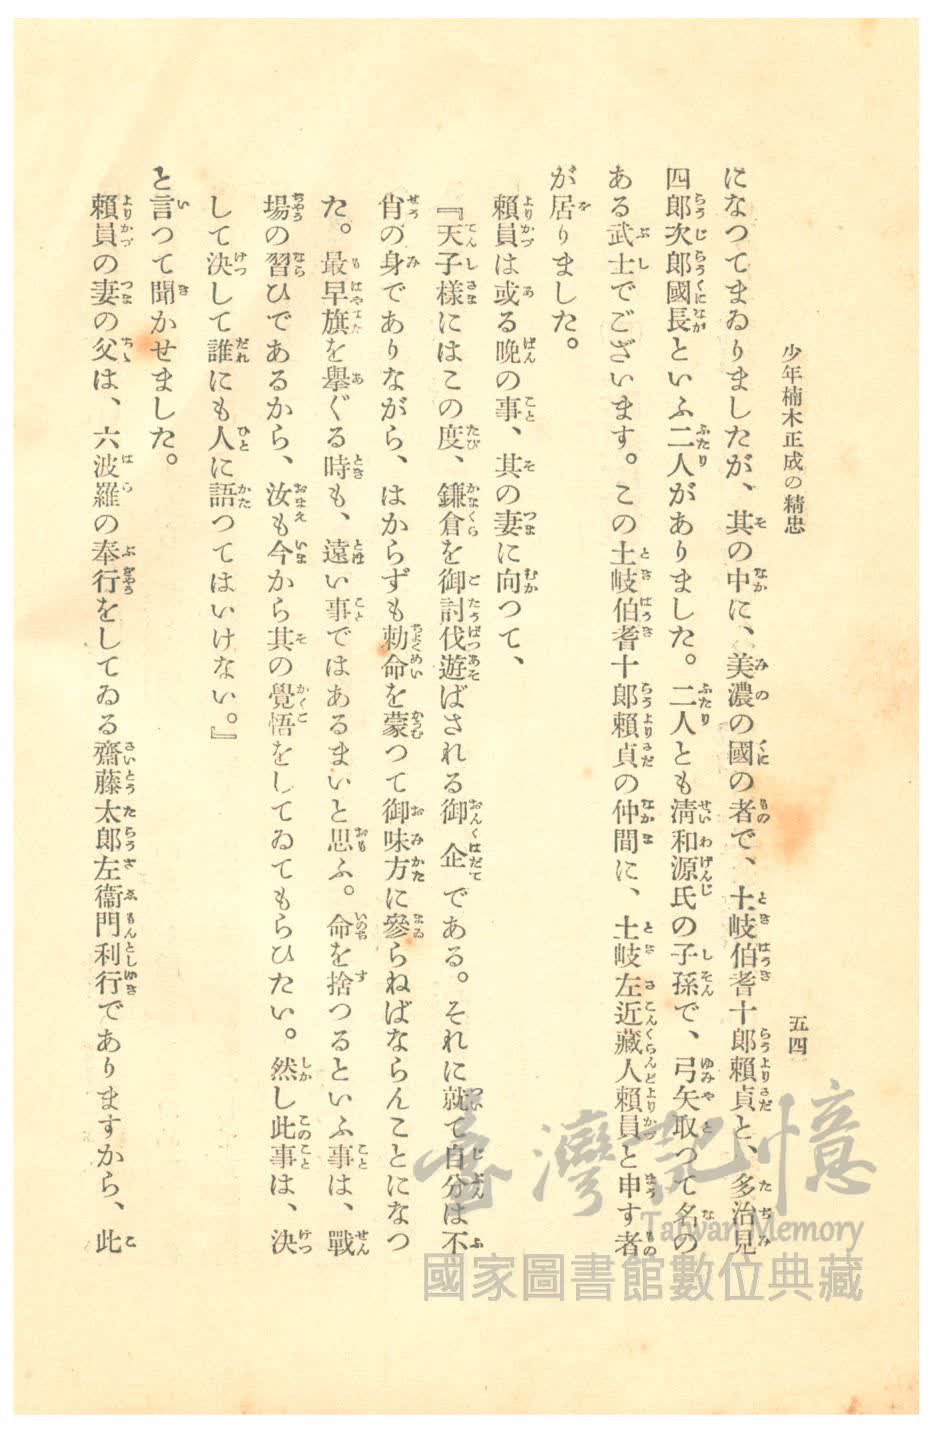 少年楠木正成の精忠
五四
になつてまゐりましたが、其の中に、美濃の國の者で、土岐伯耆十郎賴貞と、多治見
四郎次郎國長といふ二人がありました。二人とも淸和源氏の子孫で、弓矢取つて名の
ある武士でございます。この土岐伯耆十郎賴貞の仲間に、土岐左近藏人賴員と申す者
が居りました。
賴員は或る晩の事、其の妻に向つて、
『天子樣にはこの度、鎌倉を御討伐遊ばされる御企である。それに就て自分は不
肖の身でありながら、はからずも勅命を蒙つて御味方に參らねばならんことになつ
た。最早旗を擧ぐる時も、遠い事ではあるまいと思ふ。命を捨つるといふ事は、戰
場の習ひであるから、汝も今から其の覺悟をしてゐてもらひたい。然し此事は、決
して決して誰にも人に語つてはいけない。』
と言つて聞かせました。
賴員の妻の父は、六波羅の奉行をしてゐる齋藤太郎左衞門利行でありますから、此
臺灣記憶
Taiwan Memory
國家圖書館數位典藏